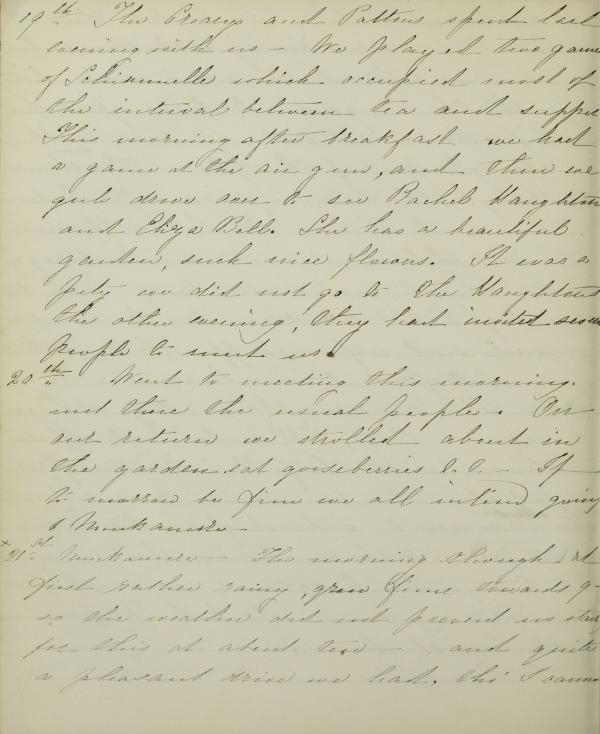 19th The Crearys and Pattons spent last
evening with us - We played two games
of Schimmelle which occupied most of
the interval between tea and supper
This morning after breakfast we had
a game at the air gun, and then we
girls drove over to see Rachel Haughton
and Eliza Bell. She has a beautiful
garden, such nice flowers. It was a
pity we did not go to the Haughtons
the other evening, they had invited some
people to meet us.
20th Went to meeting this morning.
met there the usual people. On
our return we strolled about in
the garden eat gooseberries &c. - If
to morrow be fine we all intend going
to
x 21st The morning though at
first rather rainy, grew fine towards 9-
so the weather did not prevent us
for this at about two - and quite
a pleasant drive we had, tho' I